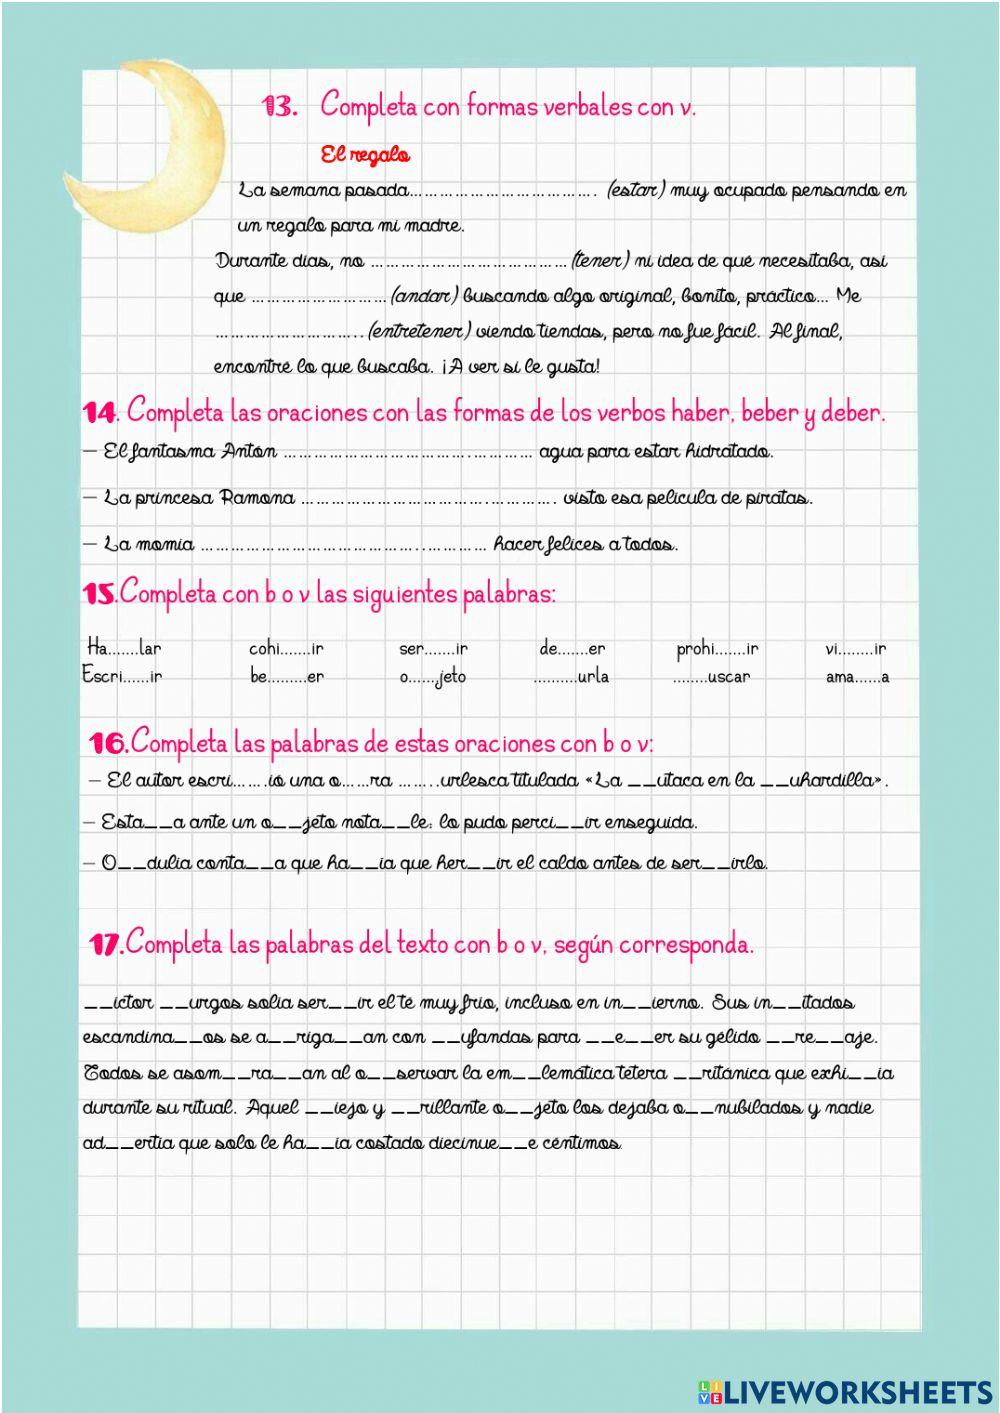 13. Completa con formas verbales con v.
El regalo
La semana pasada................................. (estar) muy ocupado pensando en
un regalo para mi madre.
Durante días, no ................................... (tener) ni idea de qué necesitaba, así
que ........................ (andar) buscando algo original, bonito, práctico... Me
.......................... (entretener) viendo tiendas, pero no fue fácil. Al final,
encontré lo que buscaba. ¡A ver si le gusta!
14. Completa las oraciones con las formas de los verbos haber, beber y deber.
– El fantasma Antón ............................................ agua para estar hidratado.
– La princesa Ramona ............................................. visto esa película de piratas.
– La momia .................................................. hacer felices a todos.
15.Completa con b o v las siguientes palabras:
Ha.......lar cohi.......ir ser.......ir de.......er prohi.......ir vi........ir
Escri......ir be.........er o......jeto ..........urla ........uscar ama......a
16.Completa las palabras de estas oraciones con b o v:
– El autor escri.......ió una o......ra .......urlesca titulada «La __utaca en la __uhardilla».
– Esta__a ante un o__jeto nota__le: lo pudo perci__ir enseguida.
– O__dulia conta__a que ha__ia que her__ir el caldo antes de ser__irlo.
17.Completa las palabras del texto con b o v, según corresponda.
__íctor __urgos solía ser__ir el té muy frío, incluso en in__ierno. Sus in__itados
escandina__os se a__riga__an con __ufandas para __e__er su gélido __re__aje.
Todos se asom__ra__an al o__servar la em__lemática tetera __ritánica que exhi__ía
durante su ritual. Aquel __iejo y __rillante o__jeto los dejaba o__nubilados y nadie
ad__ertía que solo le ha__ía costado diecinue__e céntimos.
LIVEWORKSHEETS